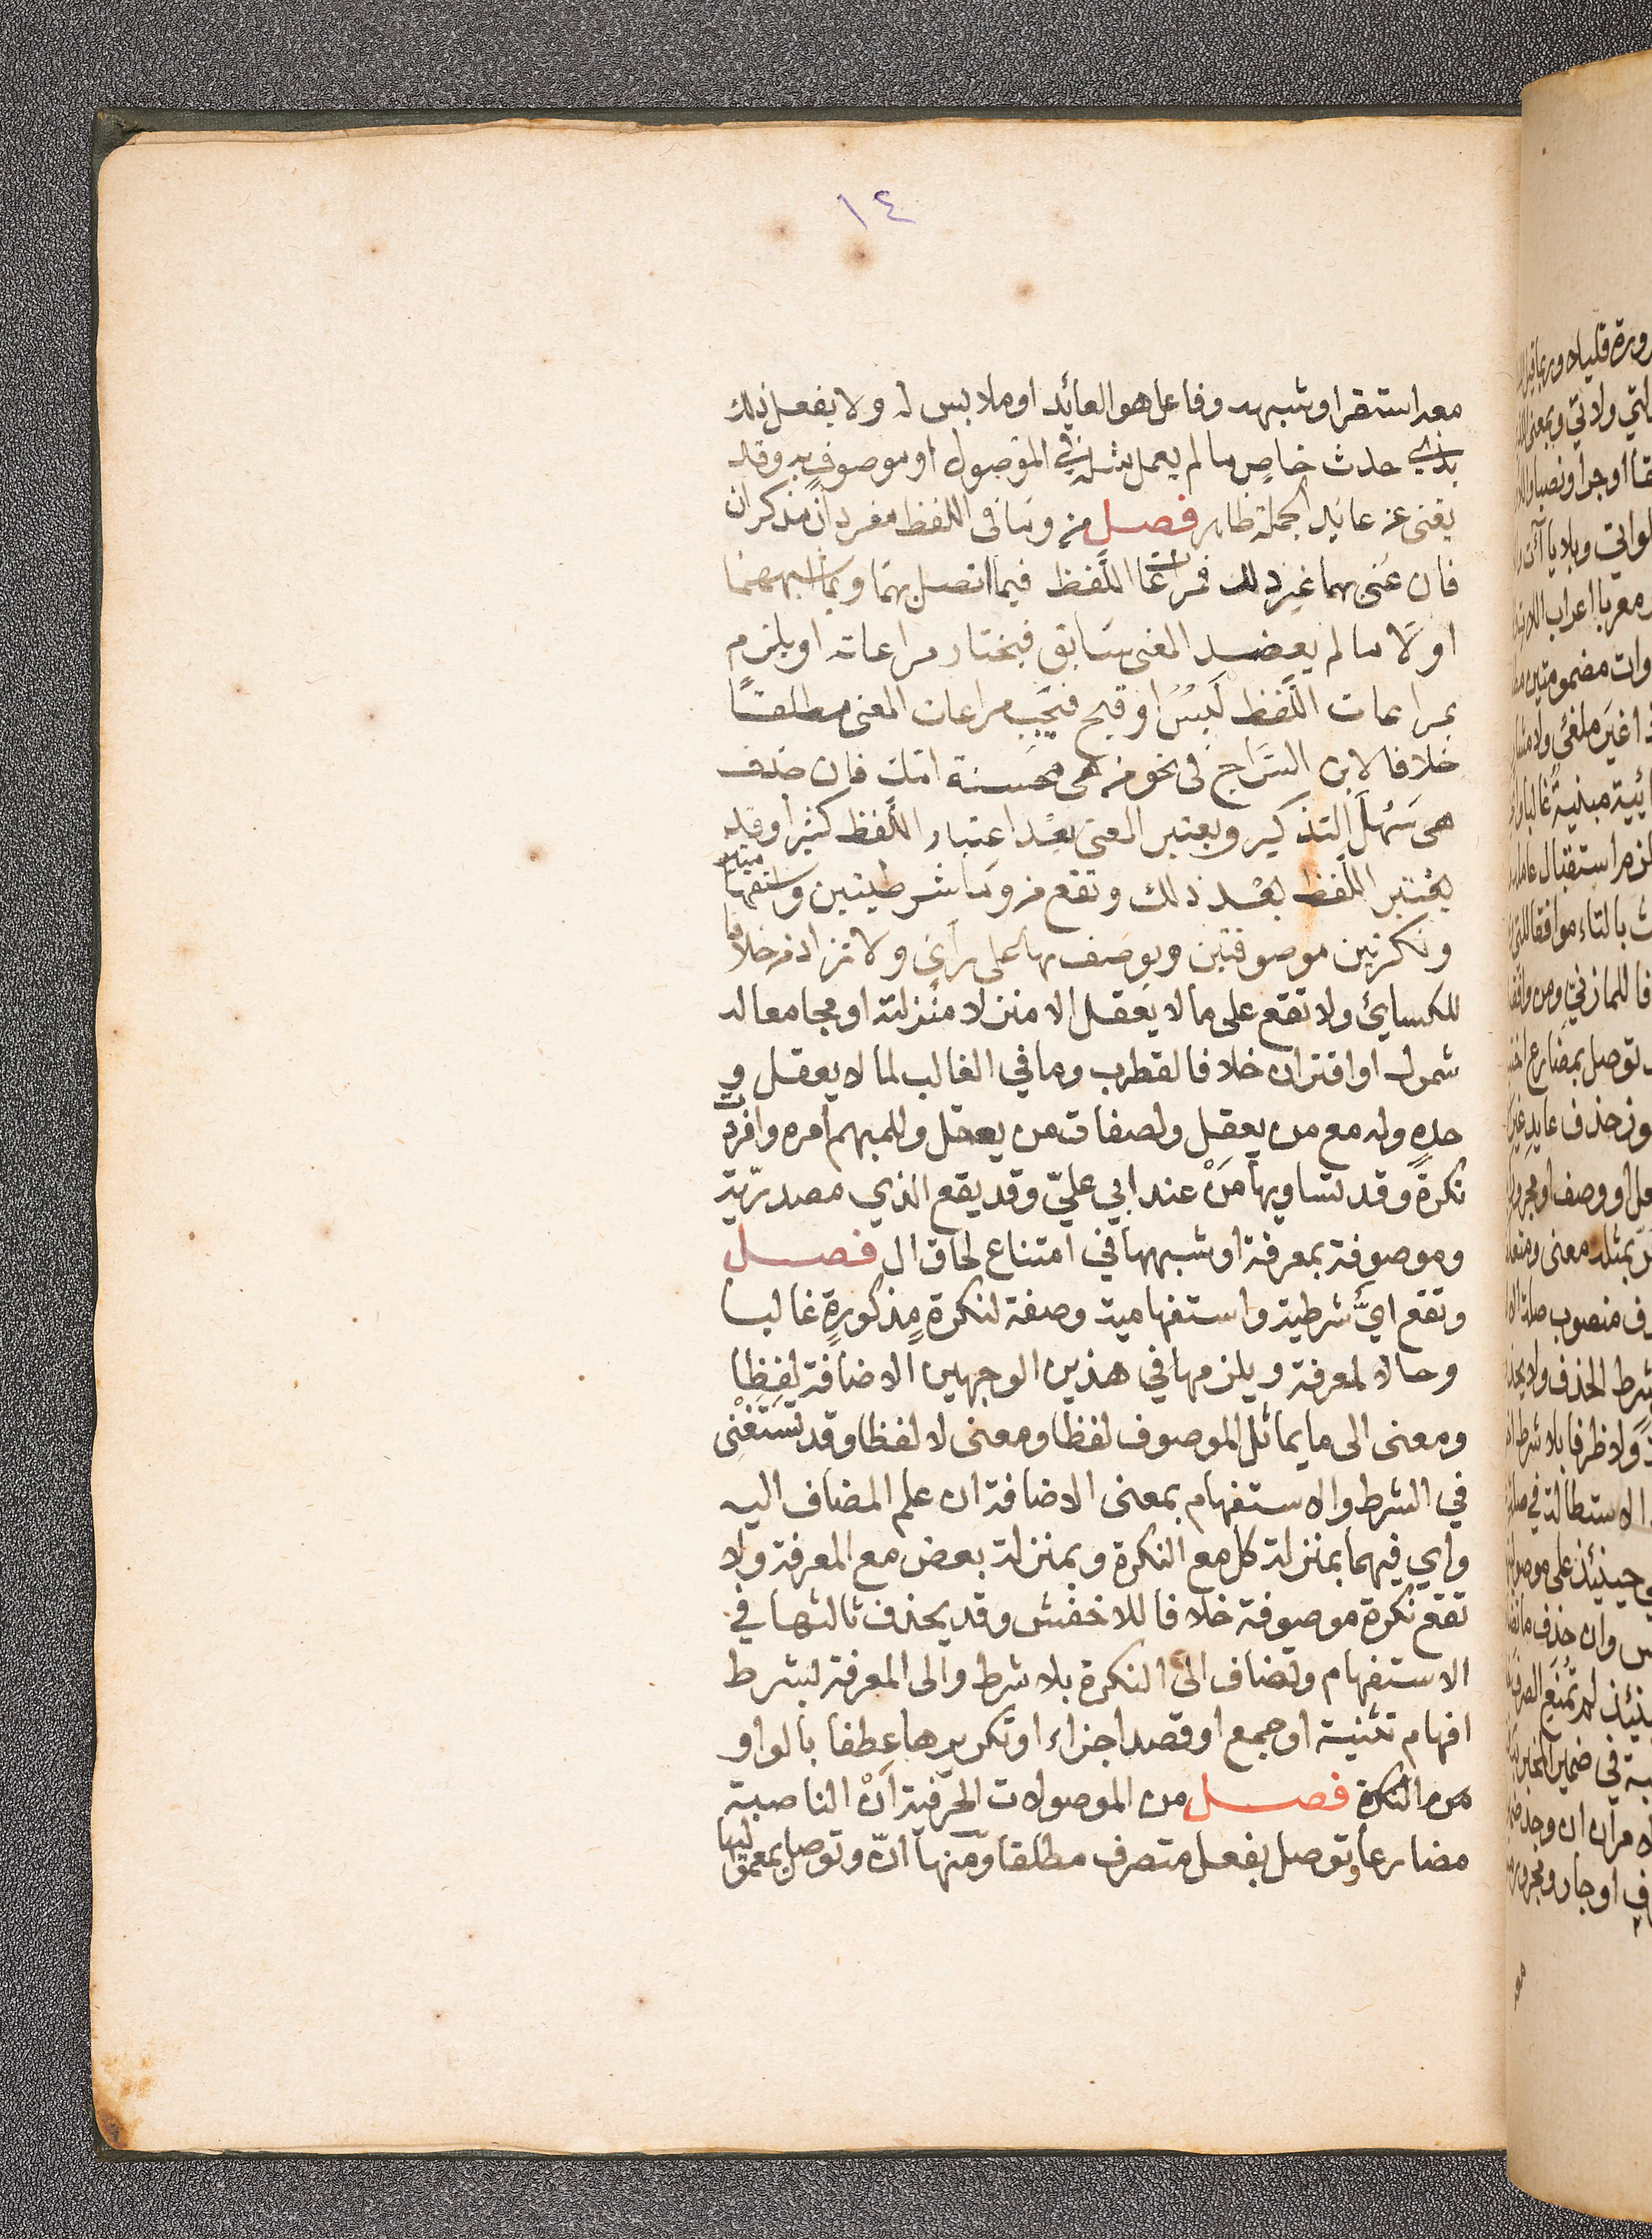 ١٤
معه استقر او شبهه وفاعل هو العائد او ملابس له ولا يفعل ذلك
بذي حدث خاص ما لم يعمل مثله في الموصول او موصوف به وقد
يغنى عن عايد الجملة ظاهر فصل من وما فى اللفظ مفردان مذكران
فان عنى بهما غير ذلك فمراعات اللفظ فيما اتصل بهما وبما اشبههما
اولا ما لم يعضد المعنى سابق فيختار مراعاته او يلزم
بمراعات اللفظ لبس او قبح فيجب مراعات المعنى مطلقا
خلافا لابن السراج فى نحو من هى محسنة امك فان حذف
هى سهل التذكير ويعتبر المعنى بعد اعتبار اللفظ كثيرا وقد
يعتبر اللفظ بعد ذلك وتقع من وما شرطيتين واستفهاميتين
ونكرتين موصوفتين ويوصف بها على رأى ولا تزاد من خلافا
للكسائي ولا تقع على ما لا يعقل الا منزلا منزلته او مجامعا له
شمول او اقتران خلافا لقطرب وما في الغالب لما لا يعقل و
حده وله مع من يعقل ولصفات من يعقل وللمبهم امره وافردت
نكرة وقد تساويها من عند ابي علي وقد يقع الذي مصدرية
وموصوفة بمعرفة او شبهها في امتناع لحاق ال فصل
وتقع اي شرطية واستفهامية وصفة لنكرة مذكورة غالبا
وحالا لمعرفة ويلزمها في هذين الوجهين الاضافة لفظا
ومعنى الى ما يماثل الموصوف لفظا ومعنى لا لفظا وقد تستغنى
في الشرط والاستفهام بمعنى الاضافة ان علم المضاف اليه
واي فيهما بمنزلة كل مع النكرة وبمنزلة بعض مع المعرفة ولا
تقع نكرة موصوفة خلافا للاخفش وقد يحذف ثالثها في
الاستفهام وتضاف الى النكرة بلا شرط والى المعرفة بشرط
افهام تثنية او جمع او قصد اجزاء او تكريرها عطفا بالواو
من النكرة فصل من الموصولات الحرفية ان الناصبة
مضارعا وتوصل بفعل متصرف مطلقا ومنها ان وتوصل بمعموليها